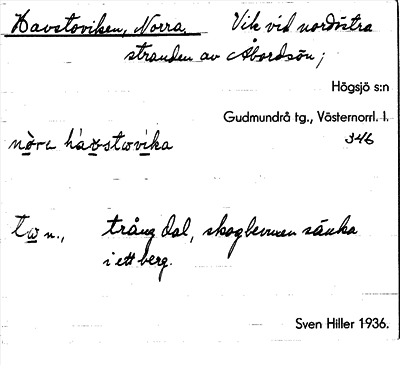 Havstoviken, Norra, Vik vid nordöstra
stranden av Åbordsön;
Högsjö s:n
Gudmundrå tg., Västernorrl. l.
346
nòra hávstovika
to n., trång dal, skogbevuxen sänka
i ett berg.
Sven Hiller 1936.